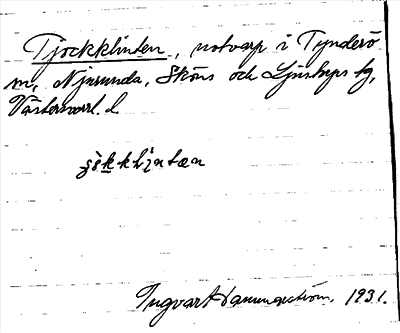 Tjockklinten, notvarp i Tynderö
m, Njurunda, Sköns och Ljustorps tg,
Västernorrl. l.
Ingvar Hammarström, 1931.